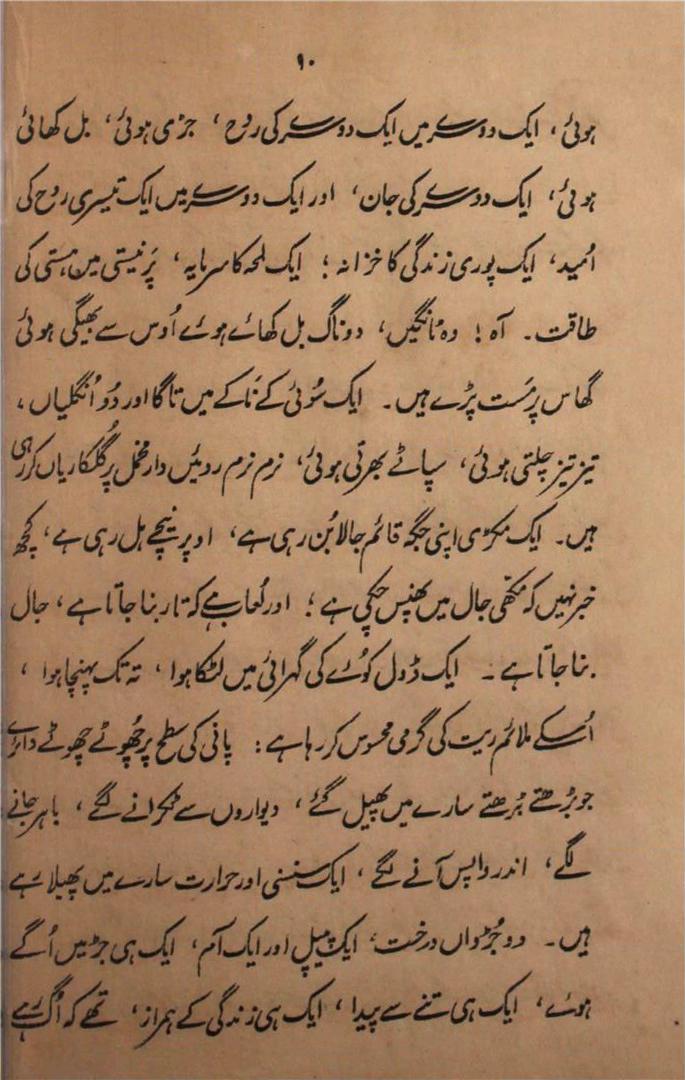 ۹۰
ہوئی، ایک دوسرے میں ایک دوسرے کی روح، جڑی ہوئی، بل کھائی
ہوئی، ایک دوسرے کی جان، اور ایک دوسرے میں ایک تیسری روح کی
اُمید، ایک پوری زندگی کا خزانہ؛ ایک لمحہ کا سرمایہ، پَر نیستی میں ہستی کی
طاقت۔ آہ! وہ ٹانگیں، دو ناگ بل کھائے ہوئے اُوس سے بھیگی ہوئی
گھاس پر مَست پڑے ہیں۔ ایک سُوئی کے نَاکے میں تاگا اور دُو اُنگلیاں،
تیز تیز چلتی ہوئی، سپاٹے بھرتی ہوئی، نرم نرم روئیں دار مخمل پر گُلکاریاں کر رہی
ہیں۔ ایک مکڑی اپنی جگہ قائم جالا بُن رہی ہے، اوپر نیچے ہل رہی ہے، کچھ
خبر نہیں کہ مکّھی جال میں پھنس چکی ہے؛ اور لُعاب ہے کہ تار بنا جاتا ہے، جال
بنا جاتا ہے۔ ایک ڈول کوئے کی گہرائی میں لٹکا ہوا، تہ تک پہنچا ہوا،
اُسکے ملائم ریت کی گرمی محسوس کر رہا ہے: پانی کی سطح پر چُھوٹے چھوٹے دائرے
جو بُڑھتے بڑھتے سارے میں پھیل گئے، دیواروں سے ٹکرانے لگے، باہر جانے
لگے، اندر واپس آنے لگے، ایک سنسنی اور حرارت سارے میں پھیلا رہے
ہیں۔ دو جُڑواں درخت، ایک پیپل اور ایک آم، ایک ہی جڑ میں اُگے
ہوئے، ایک ہی تنے سے پیدا، ایک ہی زندگی کے ہمراز، تھے کہ اُگ رہے